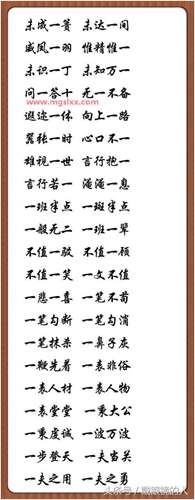 未成一篑 未达一间
威凤一羽 惟精惟一
未识一丁 未知万一
问一答十 无一不备
www.mgslxx.com
遐迩一体 向上一路
嚣张一时 心口不一
雄视一世 言行抱一
言行若一 淹淹一息
一班半点 一斑半点
一般无二 一班一辈
不值一驳 不值一顾
不值一笑 一文不值
一悲一喜 一笔不苟
一笔勾断 一笔勾消
一笔抹杀 一鼻子灰
一鞭先着 一表非俗
一表人材 一表人物
一表堂堂 一秉大公
一秉虔诚 一波万波
一步登天 一夫当关
一夫之用 一夫之勇
头条号